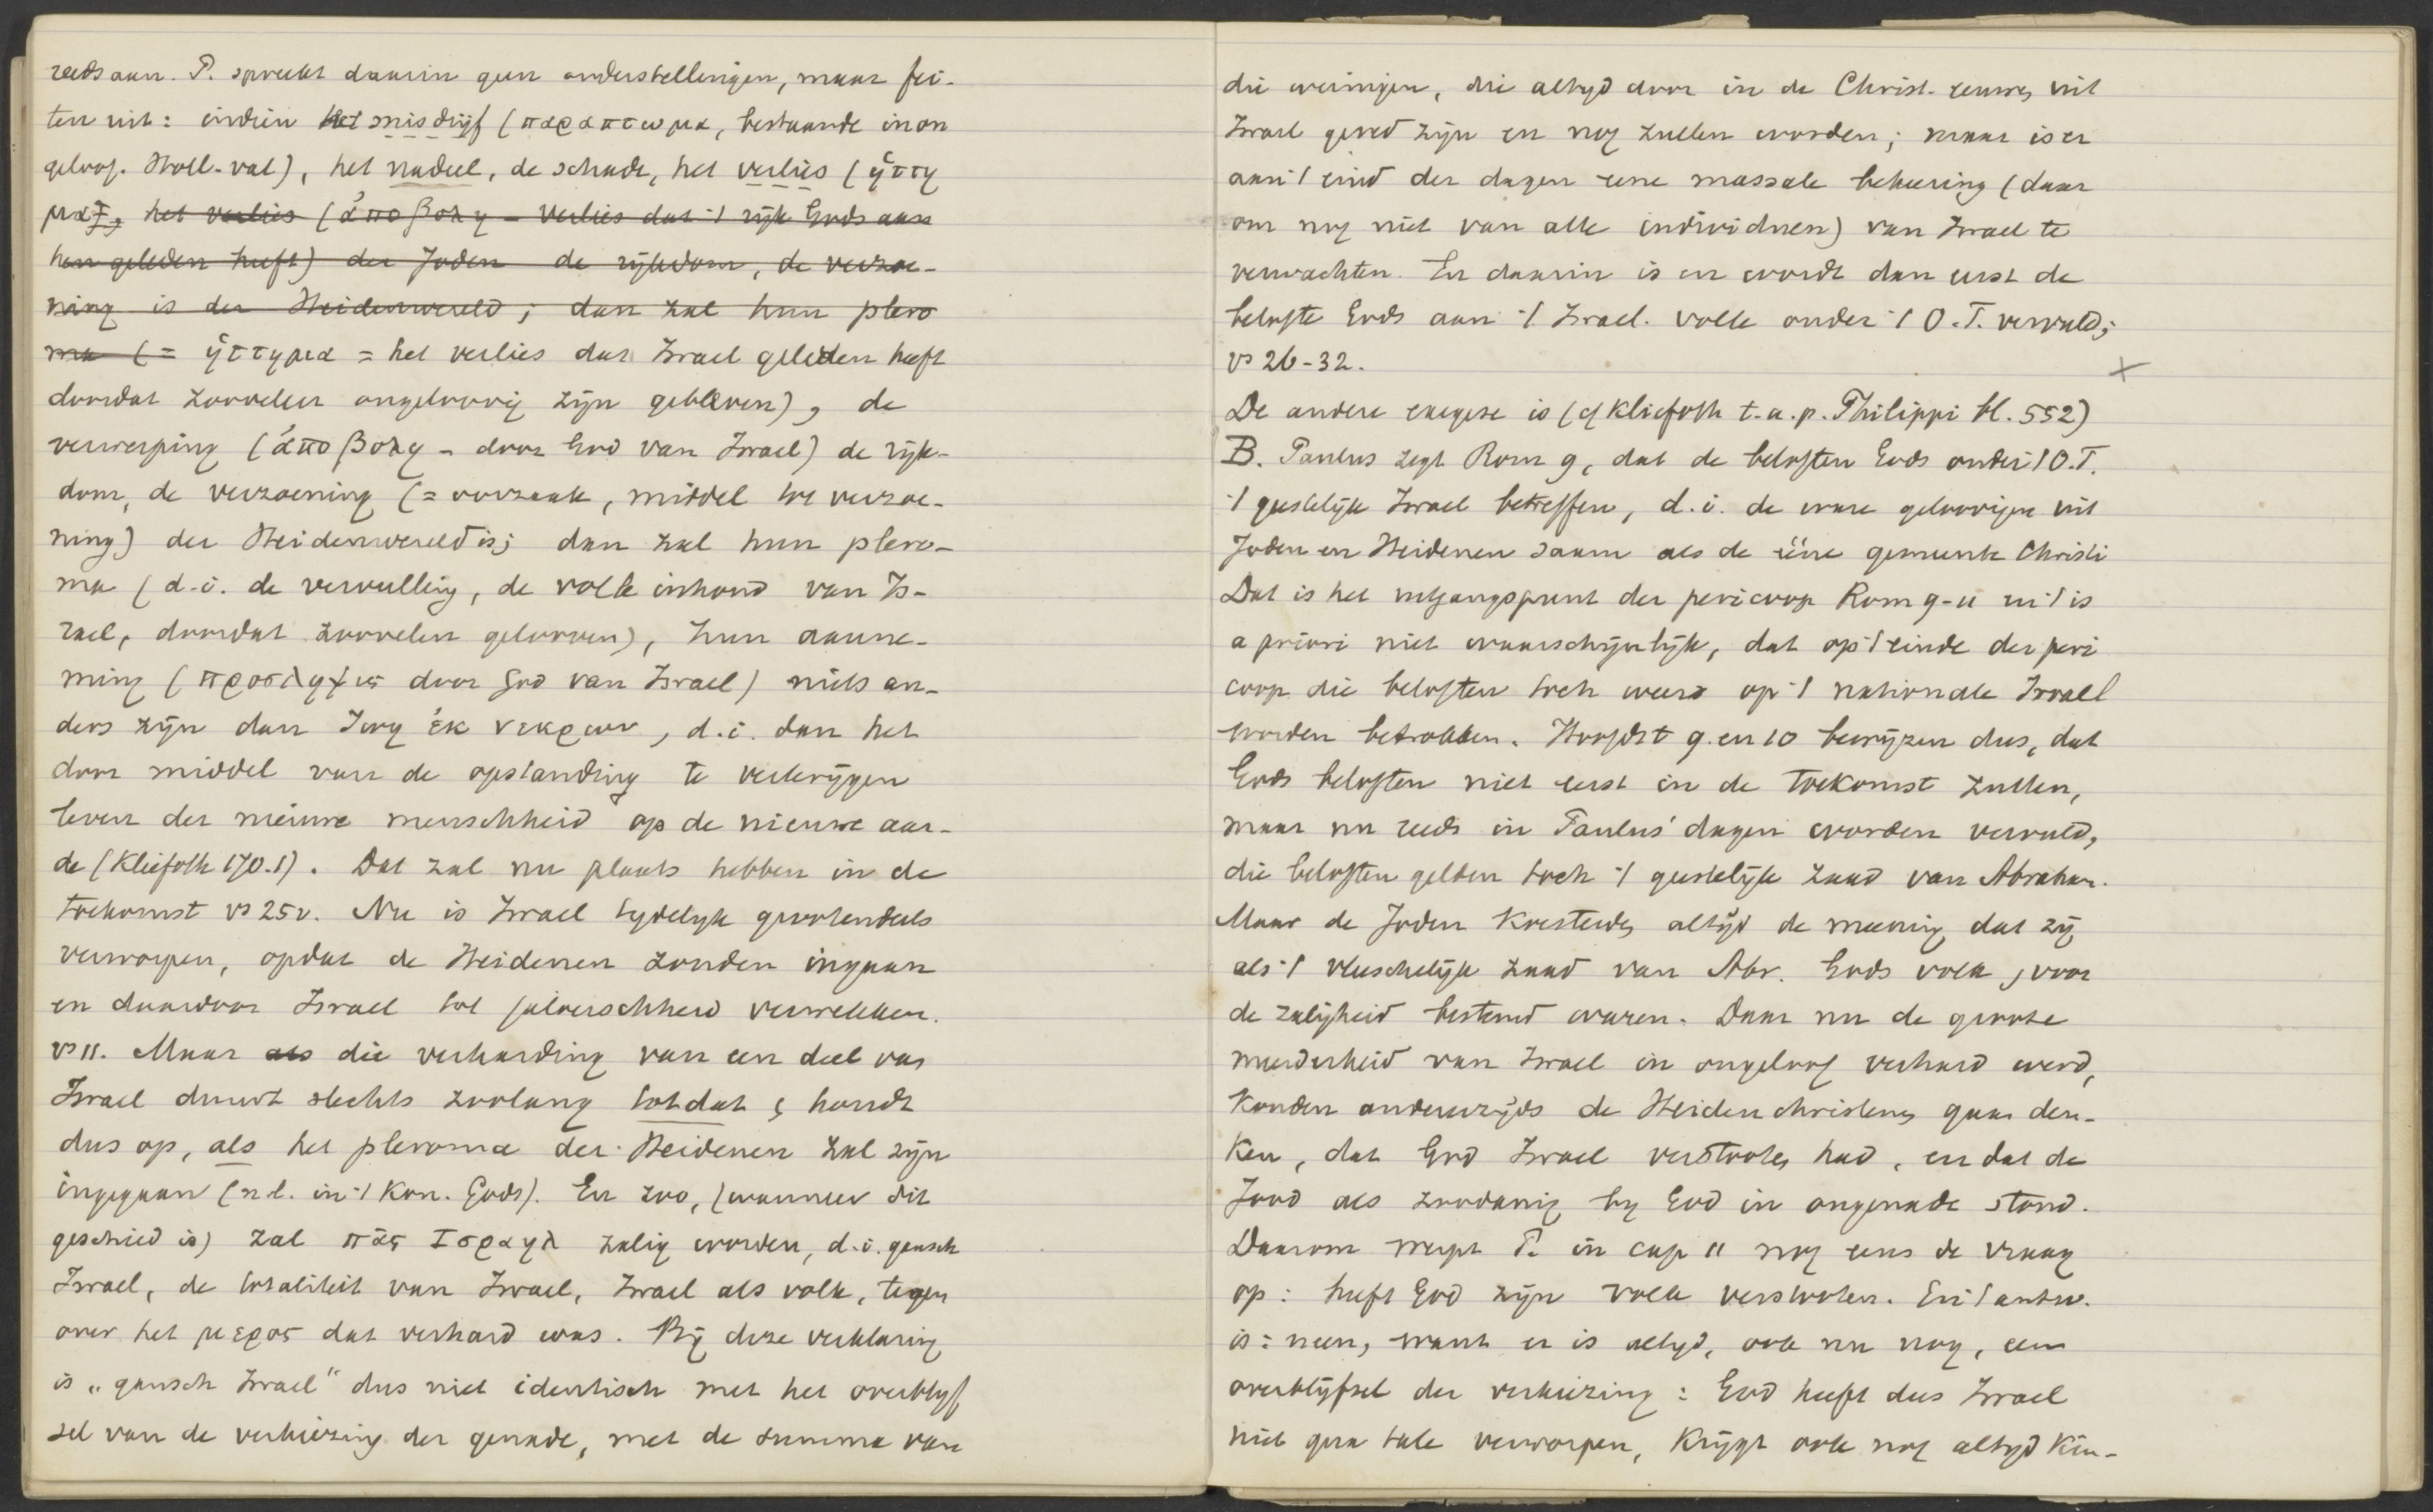 reeds aan. P. spreekt daarin geen onderstellingen, maar fei-
ten uit: indien het misdrijf (παραπτωμα, bestaande in on
geloof. Holl. val), het nadeel, de schade, het verlies (ἡττη
μα), het verlies (ἀποβολη – verlies dat 't rijk Gods aan
hen geleden heeft) der Joden de rijkdom, de verzoe-
ning is der Heidenwereld; dan zal hun plero
ma (= ἡττημα = het verlies dat Israel geleden heeft
doordat zoovelen ongeloovig zijn gebleven), de
verwerping (ἀποβολη – door God van Israel) de rijk-
dom, de verzoening (= oorzaak, middel tot verzoe-
ning) der Heidenwereld is; dan zal hun plero-
ma (d.i. de vervulling, de volle inhoud van Is-
rael, doordat zoovelen gelooven), hun aanne-
ming (προσληψις door God van Israel) niets an-
ders zijn dan ζωη ἐκ νεκρων, d.i. dan het
door middel van de opstanding te verkrijgen
leven der nieuwe menschheid op de nieuwe aar-
de (Kliefoth 170.1). Dat zal nu plaats hebben in de
toekomst vs 25v. Nu is Israel tydelyk grootendeels
verworpen, opdat de Heidenen zouden ingaan
en daardoor Israel tot jaloerschheid verwekken.
vs 11. Maar als die verharding van een deel van
Israel duurt slechts zoolang totdat, houdt
dus op, als het pleroma der Heidenen zal zijn
ingegaan (n.l. in 't Kon. Gods). En zoo, (wanneer dit
geschied is) zal πᾶς Ισραηλ zalig worden, d.i. gansch
Israel, de totaliteit van Israel, Israel als volk, tegen
over het μερος dat verhard was. Bij deze verklaring
is „gansch Israel" dus niet identisch met het overblyf
sel van de verkiezing der genade, met de summa van
die weinigen, die altyd door in de Christ. eeuwen uit
Israel gered zijn en nog zullen worden; maar is er
aan 't eind der dagen eene massale bekeering (daar
om nog niet van alle individuen) van Israel te
verwachten. En daarin is en wordt dan eerst de
belofte Gods aan 't Israel. volk onder 't O.T. vervuld;
vs 26-32.
De andere exegese is (cf Kliefoth t.a.p. Philippi bl. 552)
B. Paulus zegt Rom 9, dat de beloften Gods onder 't O.T.
't geestelijk Israel betreffen, d.i. de ware geloovigen uit
Joden en Heidenen saam als de ééne gemeente Christi
Dat is het uitgangspunt der pericoop Rom 9-11 en 't is
a priori niet waarschijnlijk, dat op 't einde der peri
coop die beloften toch weer op 't nationale Israel
worden betrokken. Hoofdst 9 en 10 bewijzen dus, dat
Gods beloften niet eerst in de toekomst zullen,
maar nu reeds in Paulus' dagen worden vervuld,
die beloften gelden toch 't geestelijk zaad van Abraham.
Maar de Joden koesterden altijd de meening dat zij
als 't vleeschelijk zaad van Abr. Gods volk, voor
de zaligheid bestemd waren. Daar nu de groote
meerderheid van Israel in ongeloof verhard werd,
konden anderzijds de Heidenchristenen gaan den-
ken, dat God Israel verstooten had, en dat de
Jood als zoodanig by God in ongenade stond.
Daarom werpt P. in cap 11 nog eens de vraag
op: heeft God zijn volk verstooten. En 't antw.
is: neen, want er is altyd, ook nu nog, een
overblijfsel der verkiezing: God heeft dus Israel
niet qua tale verworpen, krijgt ook nog altyd kin-